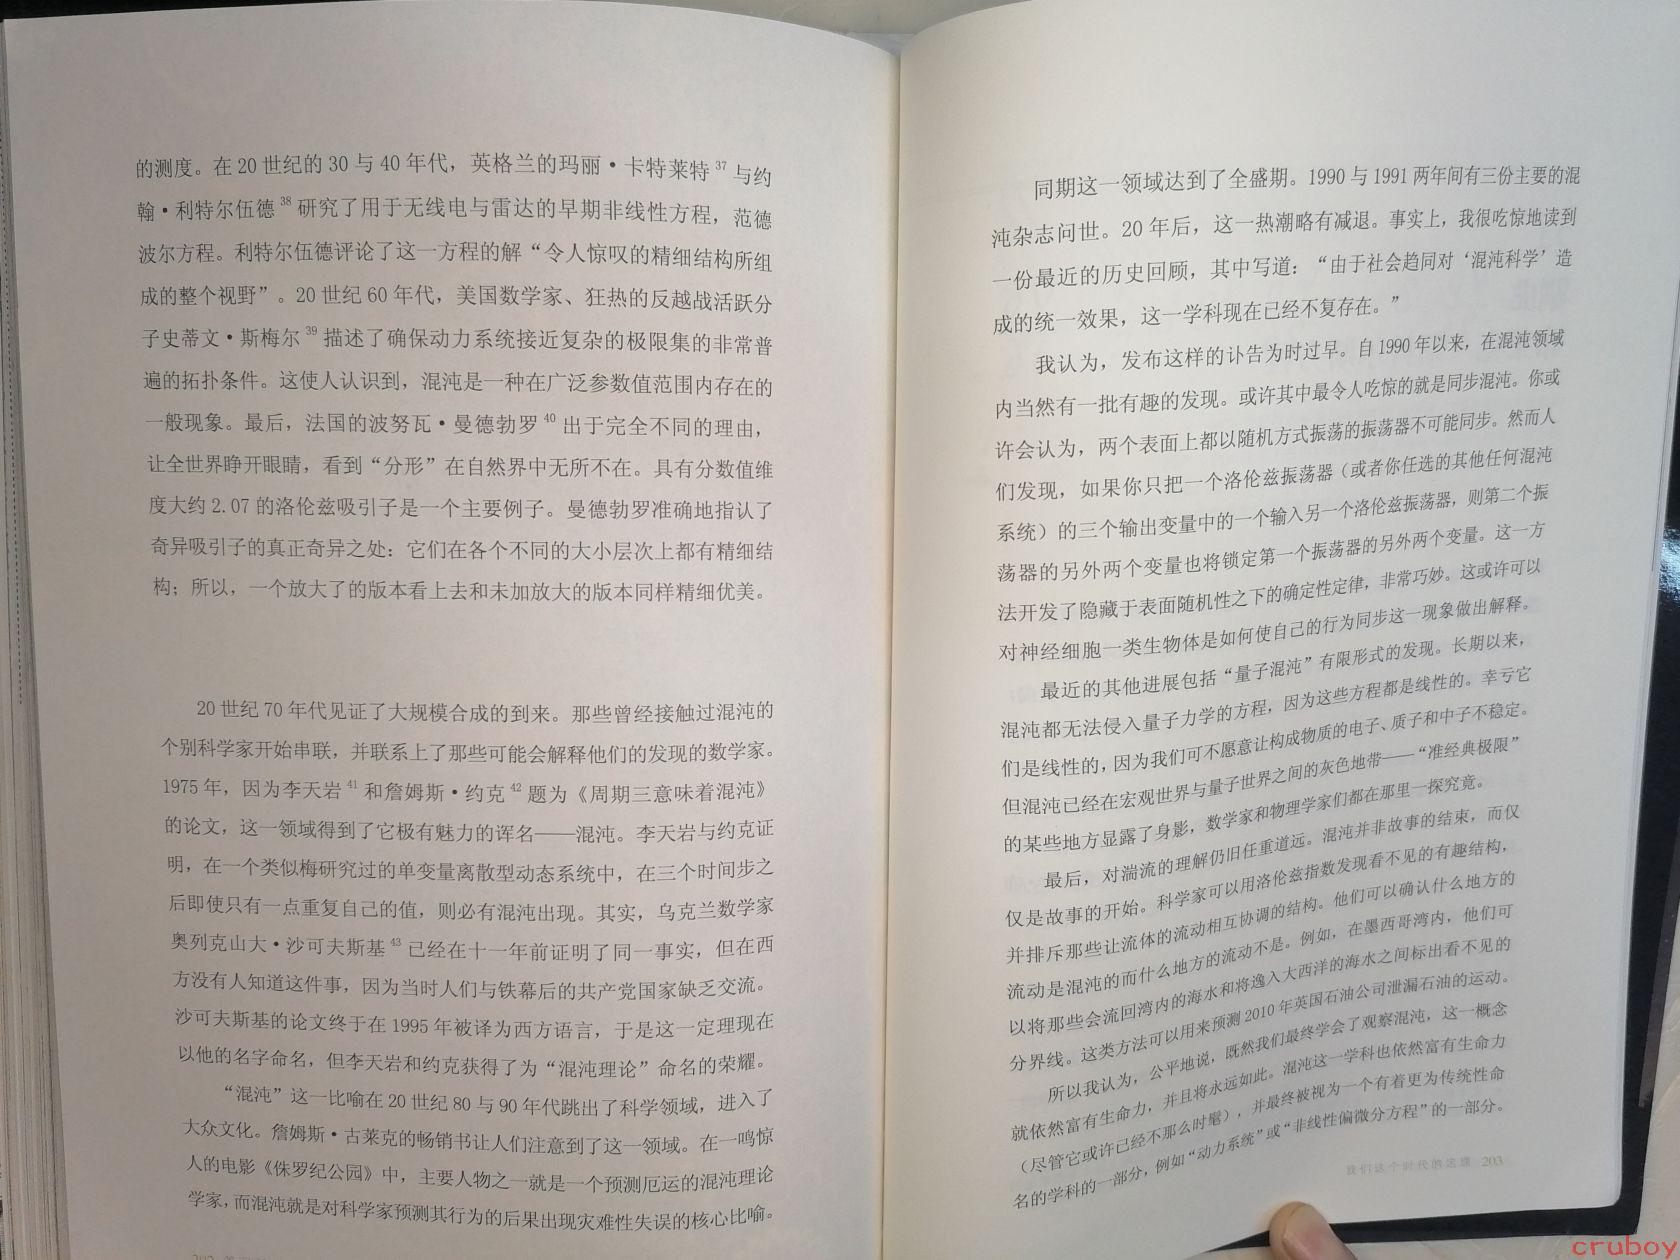 的测度。在20世纪的30与40年代，英格兰的玛丽·卡特莱特37与约
翰·利特尔伍德38研究了用于无线电与雷达的早期非线性方程，范德
波尔方程。利特尔伍德评论了这一方程的解“令人惊叹的精细结构所组
成的整个视野”。20世纪60年代，美国数学家、狂热的反越战活跃分
子史蒂文·斯梅尔39描述了确保动力系统接近复杂的极限集的非常普
遍的拓扑条件。这使人认识到，混沌是一种在广泛参数值范围内存在的
一般现象。最后，法国的波努瓦·曼德勃罗40出于完全不同的理由，
让全世界睁开眼睛，看到“分形”在自然界中无所不在。具有分数值维
度大约2.07的洛伦兹吸引子是一个主要例子。曼德勃罗准确地指认了
奇异吸引子的真正奇异之处：它们在各个不同的大小层次上都有精细结
构；所以，一个放大了的版本看上去和未加放大的版本同样精细优美。
20世纪70年代见证了大规模合成的到来。那些曾经接触过混沌的
个别科学家开始串联，并联系上了那些可能会解释他们的发现的数学家。
1975年，因为李天岩41和詹姆斯·约克42题为《周期三意味着混沌》
的论文，这一领域得到了它极有魅力的诨名——混沌。李天岩与约克证
明，在一个类似梅研究过的单变量离散型动态系统中，在三个时间步之
后即使只有一点重复自己的值，则必有混沌出现。其实，乌克兰数学家
奥列克山大·沙可夫斯基43已经在十一年前证明了同一事实，但在西
方没有人知道这件事，因为当时人们与铁幕后的共产党国家缺乏交流。
沙可夫斯基的论文终于在1995年被译为西方语言，于是这一定理现在
以他的名字命名，但李天岩和约克获得了为“混沌理论”命名的荣耀。
“混沌”这一比喻在20世纪80与90年代跳出了科学领域，进入了
大众文化。詹姆斯·古莱克的畅销书让人们注意到了这一领域。在一鸣惊
人的电影《侏罗纪公园》中，主要人物之一就是一个预测厄运的混沌理论
学家，而混沌就是对科学家预测其行为的后果出现灾难性失误的核心比喻。
同期这一领域达到了全盛期。1990与1991两年间有三份主要的混
沌杂志问世。20年后，这一热潮略有减退。事实上，我很吃惊地读到
一份最近的历史回顾，其中写道：“由于社会趋同对‘混沌科学’造
成的统一效果，这一学科现在已经不复存在。”
我认为，发布这样的讣告为时过早。自1990年以来，在混沌领域
内当然有一批有趣的发现。或许其中最令人吃惊的就是同步混沌。你或
许会认为，两个表面上都以随机方式振荡的振荡器不可能同步。然而人
们发现，如果你只把一个洛伦兹振荡器（或者你任选的其他任何混沌
系统）的三个输出变量中的一个输入另一个洛伦兹振荡器，则第二个振
荡器的另外两个变量也将锁定第一个振荡器的另外两个变量。这一方
法开发了隐藏于表面随机性之下的确定性定律，非常巧妙。这或许可以
对神经细胞一类生物体是如何使自己的行为同步这一现象做出解释。
最近的其他进展包括“量子混沌”有限形式的发现。长期以来，
混沌都无法侵入量子力学的方程，因为这些方程都是线性的。幸亏它
们是线性的，因为我们可不愿意让构成物质的电子、质子和中子不稳定。
但混沌已经在宏观世界与量子世界之间的灰色地带——“准经典极限”
的某些地方显露了身影，数学家和物理学家们都在那里一探究竟。
最后，对湍流的理解仍旧任重道远。混沌并非故事的结束，而仅
仅是故事的开始。科学家可以用洛伦兹指数发现看不见的有趣结构，
并排斥那些让流体的流动相互协调的结构。他们可以确认什么地方的
流动是混沌的而什么地方的流动不是。例如，在墨西哥湾内，他们可
以将那些会流回湾内的海水和将逸入大西洋的海水之间标出看不见的
分界线。这类方法可以用来预测2010年英国石油公司泄漏石油的运动。
所以我认为，公平地说，既然我们最终学会了观察混沌，这一概念
就依然富有生命力，并且将永远如此。混沌这一学科也依然富有生命力
（尽管它或许已经不那么时髦），并最终被视为一个有着更为传统性命
名的学科的一部分，例如“动力系统”或“非线性偏微分方程”的一部分。
我们这个时代的定理 203
cruboy